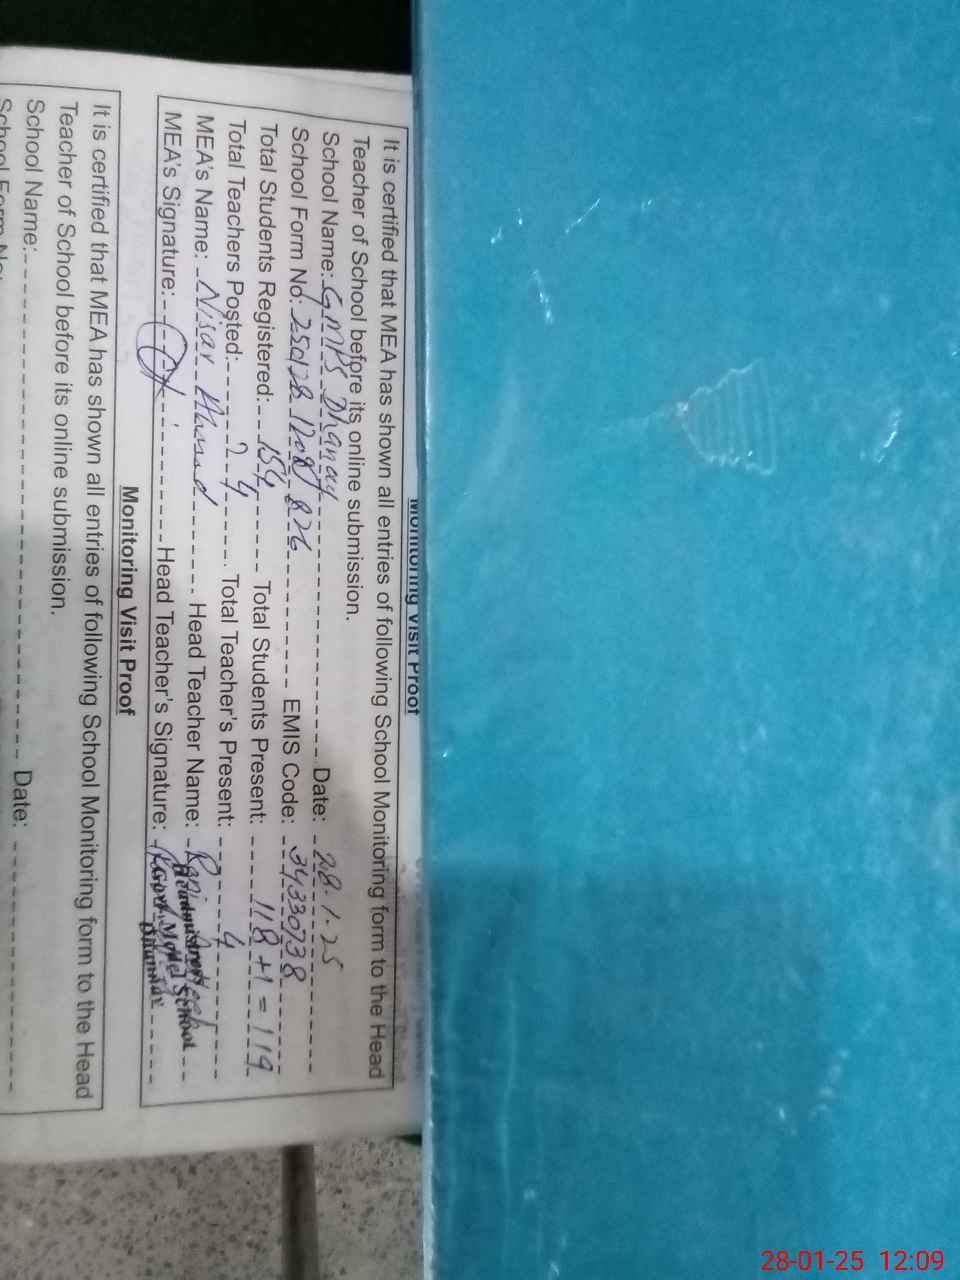 Monitoring Visit Proof
It is certified that MEA has shown all entries of following School Monitoring form to the Head
Teacher of School before its online submission.
School Name: GMPS Date: 28.1.25
School Form No: EMIS Code: 34330738
Total Students Registered: 154 Total Students Present: 118 + 1 = 119
Total Teachers Posted: 4 Total Teacher's Present: 4
MEA's Name: Nisar Ahmad Head Teacher Name:
MEA's Signature: Head Teacher's Signature:
Headmistress
Govt. Model School
Monitoring Visit Proof
It is certified that MEA has shown all entries of following School Monitoring form to the Head
Teacher of School before its online submission.
School Name: Date:
School Form No:
28-01-25 12:09